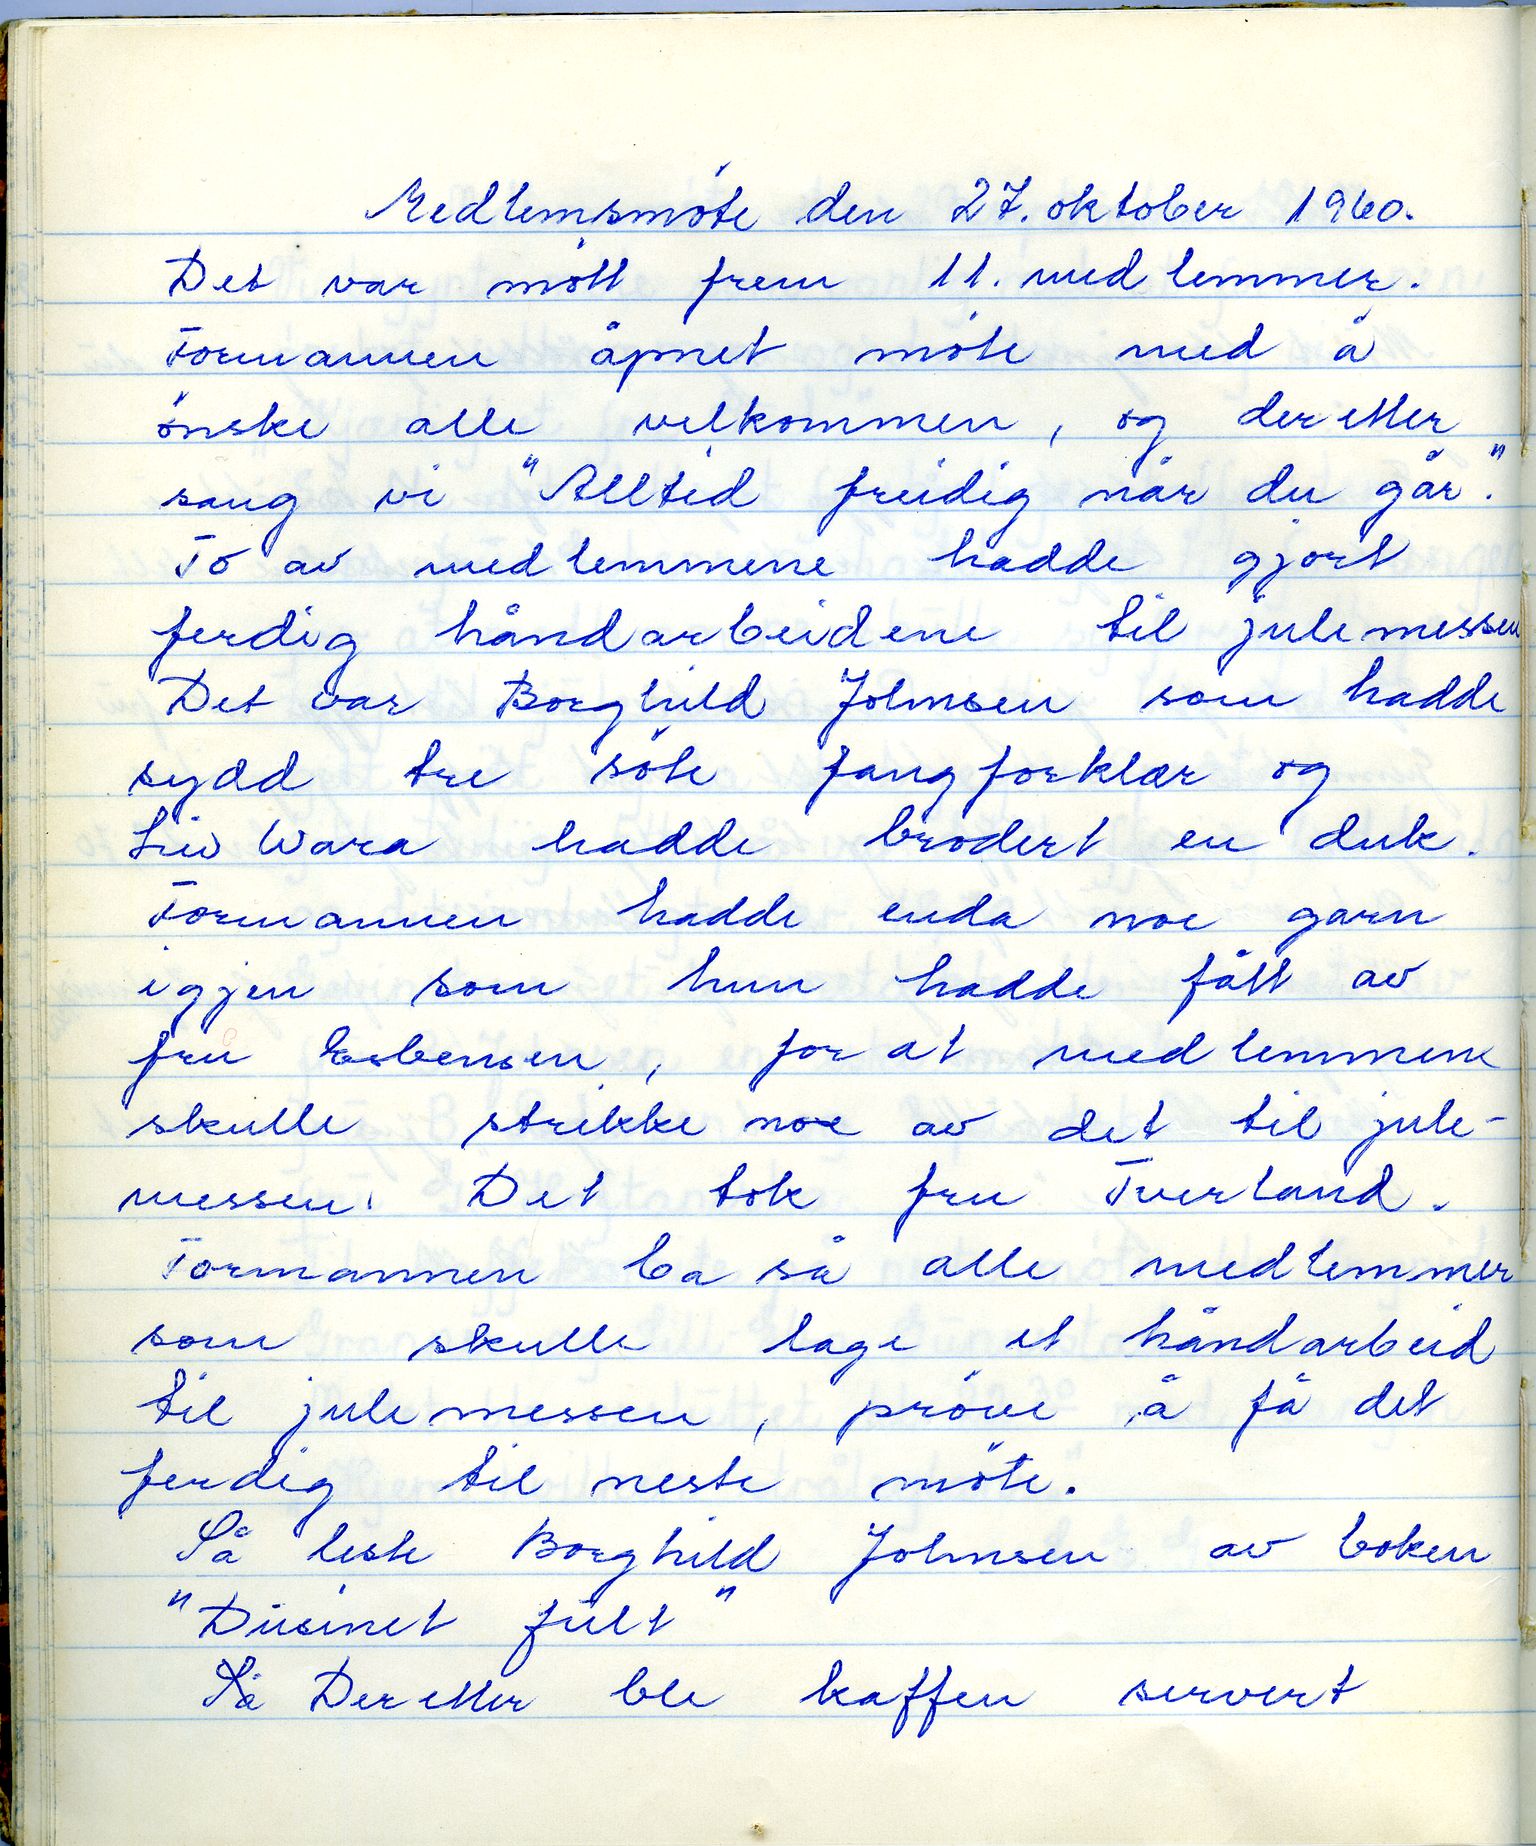 Medlemsmöte den 27. oktober 1960.
Det var mött frem 11. medlemmer.
Formannen åpnet möte med å
önske alle velkommen, og deretter
sang vi "Alltid freidig når du går".
To av medlemmene hadde gjort
ferdig håndarbeidene til julemessen
Det var Borghild Johnsen som hadde
sydd tre söte fangforklær og
Liv Wara hadde brodert en duk.
Formannen hadde enda noe garn
igjen som hun hadde fått av
fru Esbensen, for at medlemmene
skulle strikke noe av det til jule-
messen. Det tok fru Tverland.
Formannen ba så alle medlemmer
som skulle lage et håndarbeid
til julemessen, pröve å få det
ferdig til neste möte.
Så leste Borghild Johnsen av boken
"Dusinet fullt"
Så Deretter ble kaffen servert